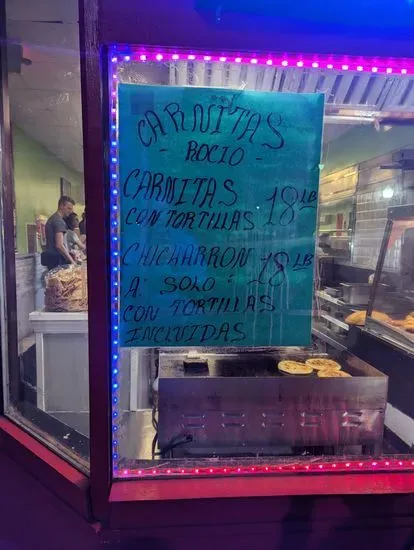 CARNITAS
- ROCIO -
CARNITAS
CON TORTILLAS 18 LB
CHICHARRON
A SOLO : 18 LB
CON TORTILLAS
INCLUIDAS